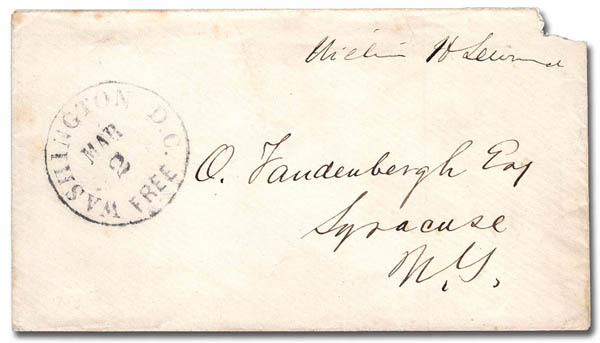 William H Seward
WASHINGTON D.C.
MAR
2
FREE
O. Vandenbergh Esq
Syracuse
N.Y.